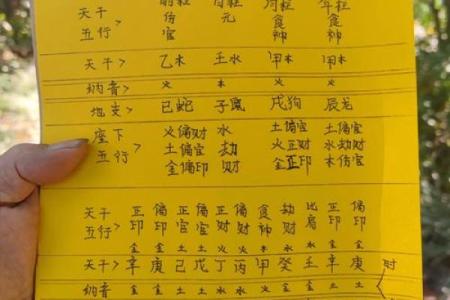 天干 伤 元 食 食
五行> 官 神 神
天干> 乙木 壬水 甲木 甲木
纳音> 火 木 火 火
地支> 巳蛇 子鼠 戌狗 辰龙
座下 火偏财 水 土偏官 土偏官
五行> 土偏官 劫 火正财 水劫财
金偏印 财 金正印 木伤官
天干 正 偏 正 偏 正 偏 食 劫 比 正 偏
五行> 印 印 官 官 财 财 神 财 肩 印 印
金 金 土 土 火 火 木 水 水 金 金
天干> 辛 庚 己 戊 丁 丙 甲 癸 壬 辛 庚 时
纳音 金 金 土 土